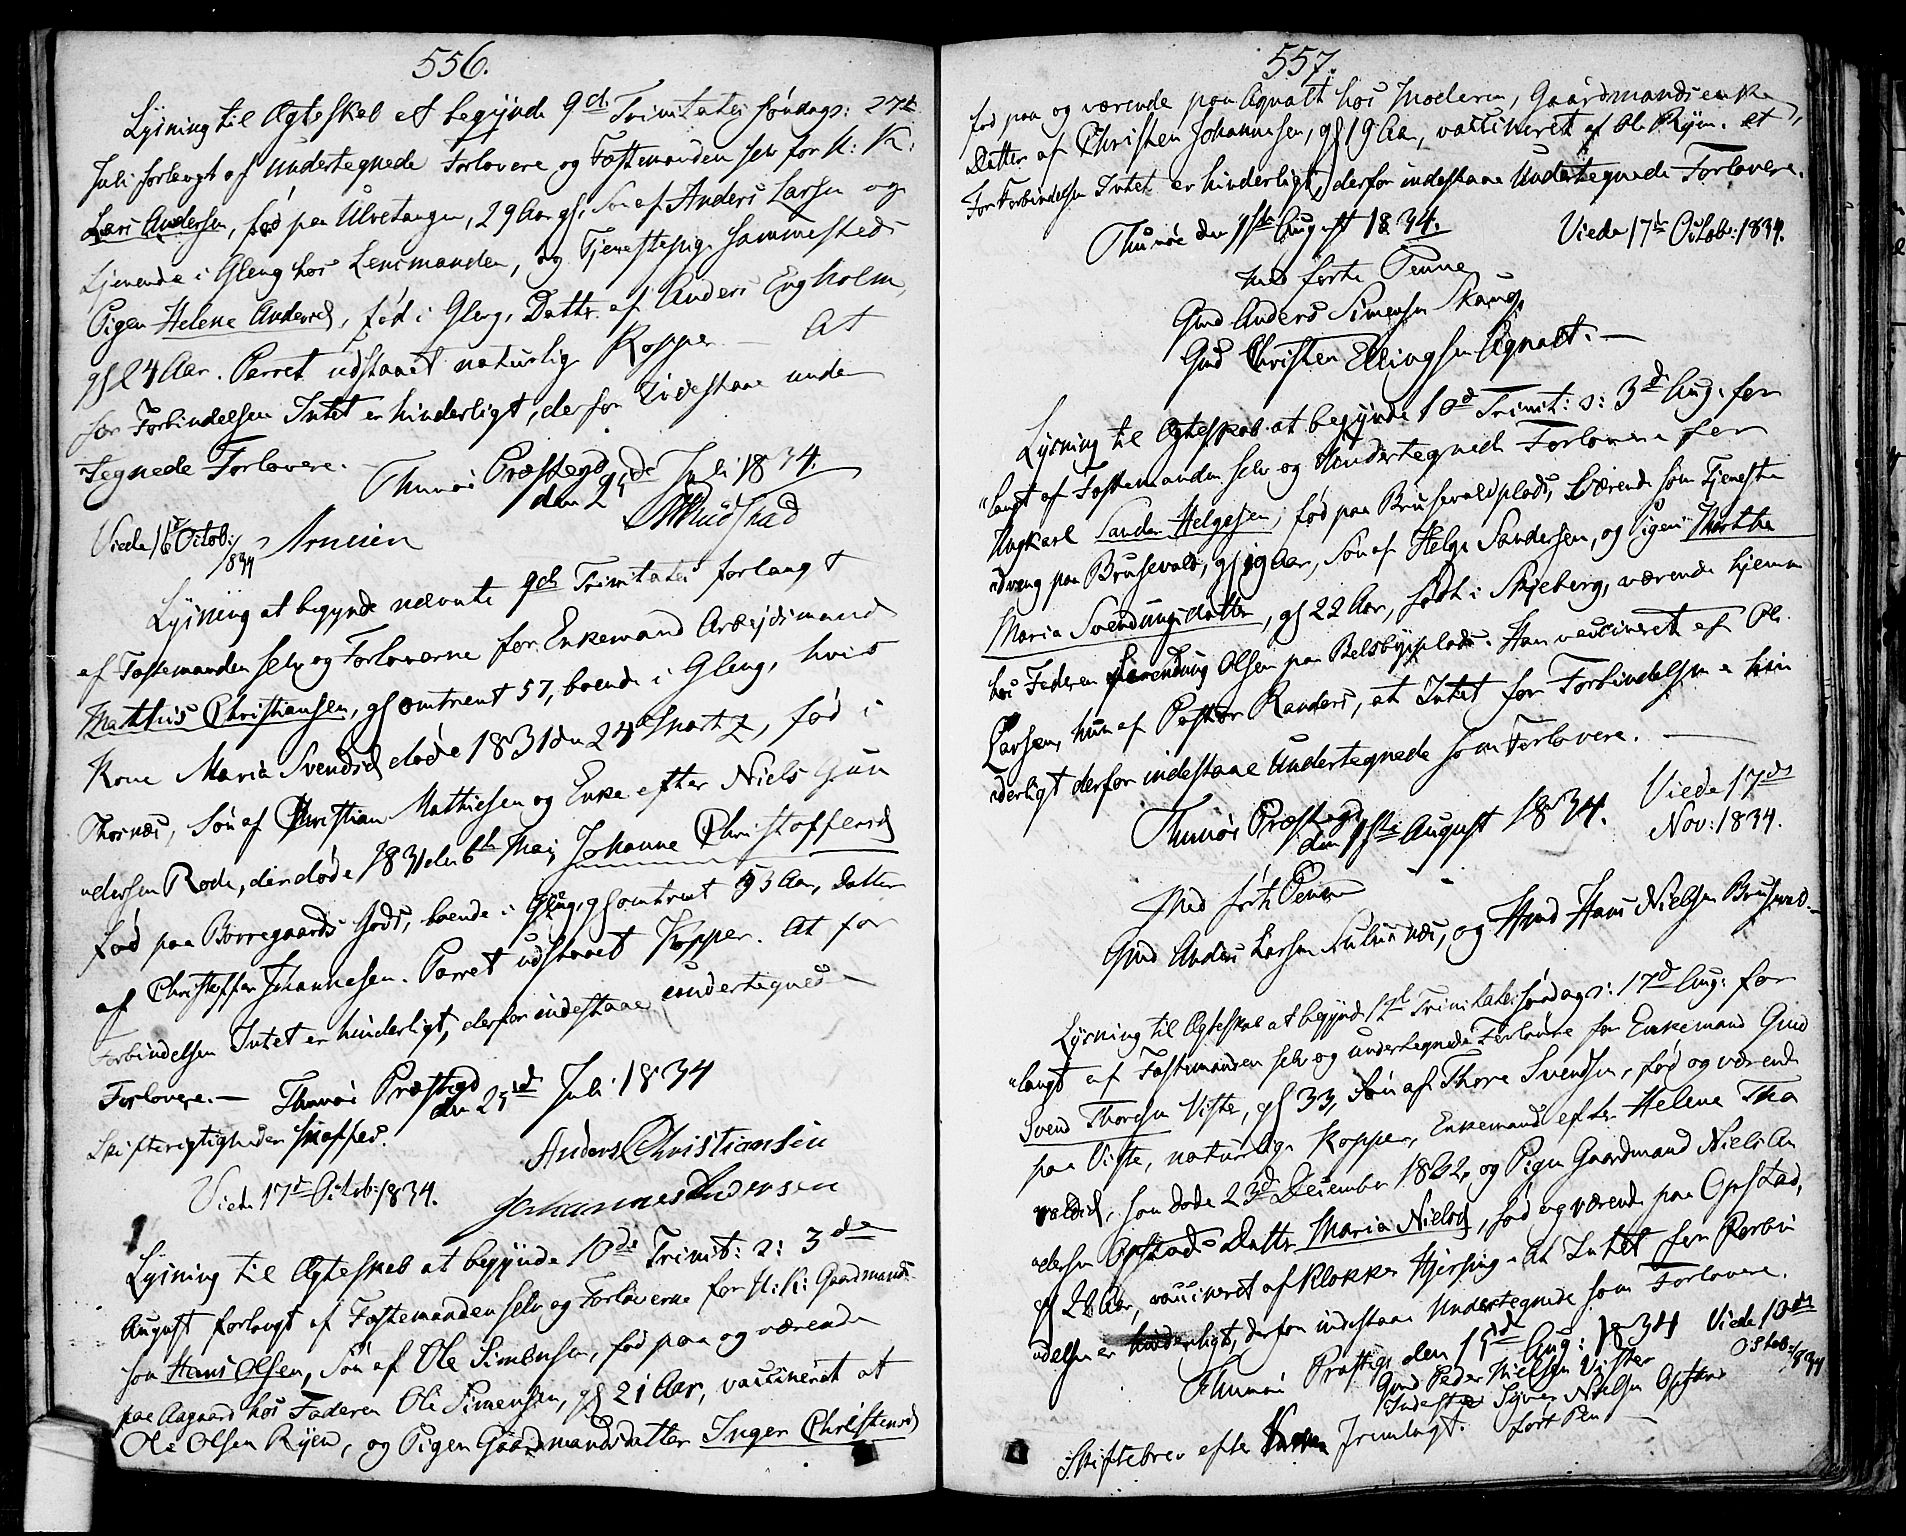 556.
Lysning til Ægteskab at begynde 9d. Trinitatis søndag s: 27de
Juli forlangt af undertegnede Forlovere og Fæstemanden selv for U: K:
Lars Andersen, fød paa Ulvetangen, 29 Aar gl. Søn af Anders Larsen og
tjenende i Gleng hos Lensmanden, og Tjenestepige sammesteds
Pigen Helene Andersd, fød i Gleng, Datter af Anders Engholm,
gl 24 Aar. Parret udstaaet naturlige Kopper — At
for Forbindelsen Intet er hinderligt, derfor indestaae under
tegnede Forlovere.
Thunøe Præstegd
den 25de Juli 1834.
Viede 16d Octob:
1834
Arnesen
Lysning at begynde nævnte 9de Trinitatis forlangt
af Fæstemanden selv og Forloverne for Enkemand Arbejdsmand
Matthis Christiansen, gl omtrent 57, boende i Gleng, hvis
Kone Maria Svendsd døde 1831 den 24d Martz, fød i
Thosnæs, Søn af Christian Mathiesen og Enke efter Niels Gun
dersen Rode, der døde 1831 den 6te Maj Johanne Christoffersd
fød paa Borregaards Gods, boende i Gleng, gl omtrent 53 Aar, Datter
af Christoffer Johannesen. Parret udstaaet Kopper. At for
Forbindelsen Intet er hinderligt, derfor indestaae undertegnede
Forlovere. — Thunøe Præstegd
den 25de Juli 1834
Skifterigtigheden skaffes.
Anders Christiansen
Viede 17d Octob: 1834.
Johannes Andersen
Lysning til Ægteskab at begynde 10de Trinit: s: 3de
August forlangt af Fæstemanden selv og Forloverne for U: K: Gaardmands
søn Hans Olsen, Søn af Ole Simensen, fød paa og værende
paa Aagaard hos Faderen Ole Simensen, gl 21 Aar, vaccineret at
Ole Olsen Ryen, og Pigen Gaardmandsdatter Inger Christensd
557.
fød paa og værende paa Agnalt hos Moderen, Gaardmandsenke
Datter af Christen Johannesen, gl 19 Aar, vaccineret af Ole Ryen. At
for Forbindelsen Intet er hinderligt, derfor indestaae Undertegnede Forlovere.
Thunøe den 1ste August 1834.
Viede 17de Octob: 1834.
med førte Penne
Gmd Anders Simensen
Gmd Christen Ellingsen Agnalt. —
Lysning til Ægteskab at begynde 10d Trinit: s: 3d Aug: for
langt af Fæstemanden selv og Undertegnede Forlovere for
Ungkarl Sander Helgesen, fød paa Brusevaldplads, værende som Tjeneste
dreng paa Brusevald, gl 19 Aar, Søn af Helge Sandersen, og Pigen Marthe
Maria Svendungsdatter, gl 22 Aar, født i Skjeberg, værende hjemme
hos Faderen Svendung Olsen paa Belsbyeplads. Han vaccineret af Ole
Larsen, hun af Pastor Randers, at Intet for Forbindelsen er hin
derligt derfor indestaae Undertegnede som Forlovere. —
Thunøe Præstegd
den 1ste August 1834.
Viede 17de
Nov: 1834.
Med ført Penn
Gmd Anders Larsen, og Gmd Hans Nielsen Brusevald. —
Lysning til Ægteskab at begynde 12te Trinitatis søndag s: 17d Aug: for
langt af Fæstemanden selv og undertegnede Forlovere for Enkemand Gmd
Svend Thoresen Viste, gl 33, Søn af Thore Svendsen, fød og værende
paa Viste, naturlige Kopper, Enkemand efter Helene Tho
valdsd, som døde 23d December 1832, og Pigen Gaardmand Niels An
dersen Opstads Datter Maria Nielsd, fød og værende paa Opstad,
gl 28 Aar, vaccineret af Klokker Hjersing. At Intet for Forbin
delsen er hinderligt, derfor indestaae Undertegnede som Forlovere.
Thunøe Præstegd den 15de Aug: 1834
Viede 10de
Octob: 1834
Gmd Peder Nielsen Vister
Nielsen Opstad
ført Pen
Skiftebrev efter Konen fremlagt.